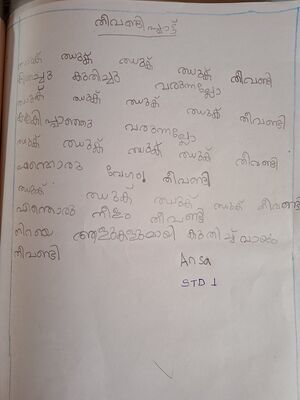 തീവണ്ടിപ്പാട്ട്
ഝുക്ക് ഝുക്ക് ഝുക്ക് ഝുക്ക് തീവണ്ടി
കുതിച്ചു വരുന്നല്ലോ
ഝുക്ക് ഝുക്ക് ഝുക്ക് ഝുക്ക് തീവണ്ടി
വരുന്നല്ലോ
ഝുക്ക് ഝുക്ക് ഝുക്ക് ഝുക്ക് തീവണ്ടി
എന്തൊരു വേഗം തീവണ്ടി
ഝുക്ക് ഝുക്ക് ഝുക്ക് ഝുക്ക് തീവണ്ടി
എന്തൊരു നീളം തീവണ്ടി
നിറയെ ആളുകളുമായി കുതിച്ച്
തീവണ്ടി
Ansa
STD 1